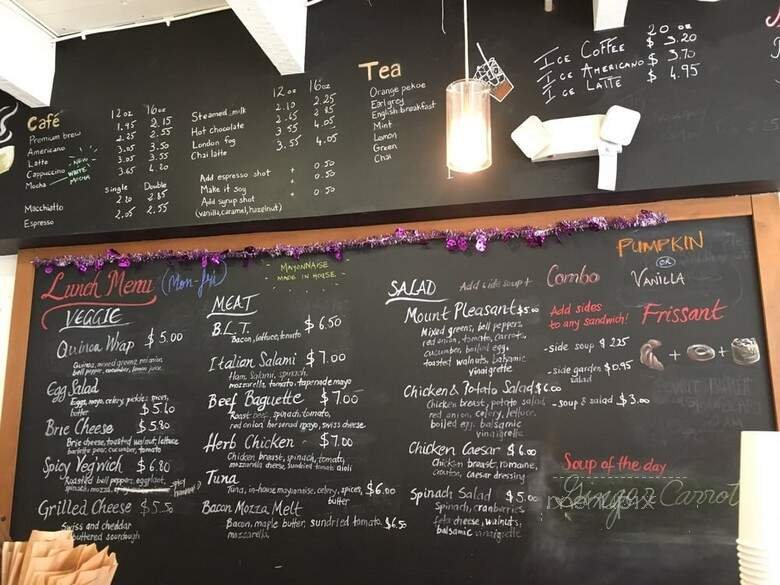 Café
12oz 16oz
Premium brew 1.95 2.15
Americano 2.25 2.55
Latte 3.05 3.50
Cappuccino 3.05 3.55
Mocha 3.65 4.20
NEW
WHITE
MOCHA
Single Double
Macchiatto 2.20 2.85
Espresso 2.05 2.55
12oz 16oz
Steamed milk 2.10 2.25
Hot chocolate 2.65 2.85
London fog 3.55 4.05
Chai latte 3.55 4.05
Add espresso shot + 0.50
Make it soy + 0.50
Add syrup shot + 0.50
(vanilla, caramel, hazelnut)
Tea
Orange pekoe
Earl grey
English breakfast
Mint
Lemon
Green
Chai
20 oz
ICE COFFEE $ 3.20
ICE AMERICANO $ 3.70
ICE LATTE $ 4.95
Lunch Menu (Mon-fri)
MAYONNAISE
MADE IN HOUSE
VEGGIE
Quinoa Wrap $5.00
Quinoa, mixed greens, onion,
bell peper, cucumber, lemon juice
Egg Salad
Eggs, mayo, celery, pickles, spices,
butter $5.60
Brie Cheese $5.80
Brie cheese, toasted walnut, lettuce
bartlette pear, cucumber, tomato
Spicy Vegwich $6.80
Roasted bell pepper, eggplant,
spinach, mozza spicy
hummus?
Grilled Cheese $5.50
Swiss and cheddar
buttered sourdough
MEAT
B.L.T. $6.50
Bacon, lettuce, tomato
Italian Salami $7.00
Ham, salami, spinach,
mozzarella, tomato, tapenade mayo
Beef Baguette $7.00
Roast beef, spinach, tomato,
red onion, horserad mayo, swiss cheese
Herb Chicken - $7.00
Chicken breast, spinach, tomato,
mozzarella cheese, sundried tomato aioli
Tuna
Tuna, in-house mayonnaise, celery, spices, $6.00
butter
Bacon Mozza Melt
Bacon, maple butter, sundried tomato $6.50
mozzarella,
SALAD
Mount Pleasant $5.00
Mixed greens, bell peppers
red onion, tomato, carrots,
cucumber, boiled egg,
toasted walnuts, balsamic
vinaigrette
Chicken & Potato Salad $6.00
Chicken breast, potato salad
red onion, celery, lettuce,
boiled egg, balsamic
vinaigrette
Chicken Caesar $6.00
Chicken breast, romaine,
crouton, caesar dressing
Spinach Salad $5.00
Spinach, cranberries
feta cheese, walnuts,
balsamic vinaigrette
Add side soup +
Combo
Add sides
to any sandwich!
-side soup $2.25
-side garden $0.95
salad
-soup & salad $3.00
PUMPKIN
OR
VANILLA
Frissant
+ + 
Soup of the day
Ginger Carrot
menupix